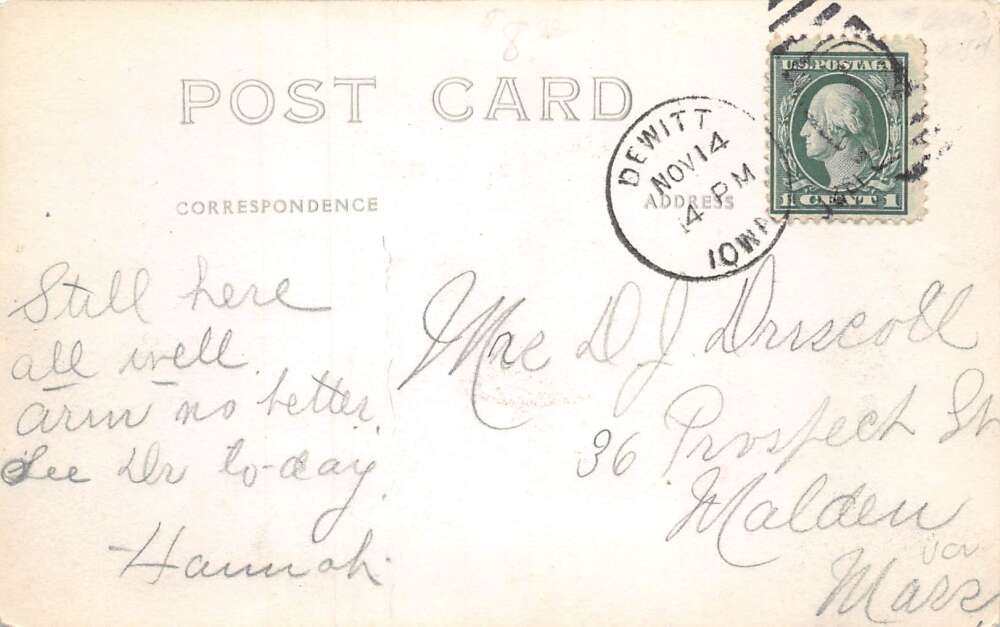 POST CARD
CORRESPONDENCE
ADDRESS
U.S. POSTAGE
1 CENT 1
DEWITT
NOV 14
4 PM
IOWA
Still here
all well.
arm no better.
See Dr to-day.
Hannah
Mrs D J. Driscoll
36 Prospect St
Malden
Mass